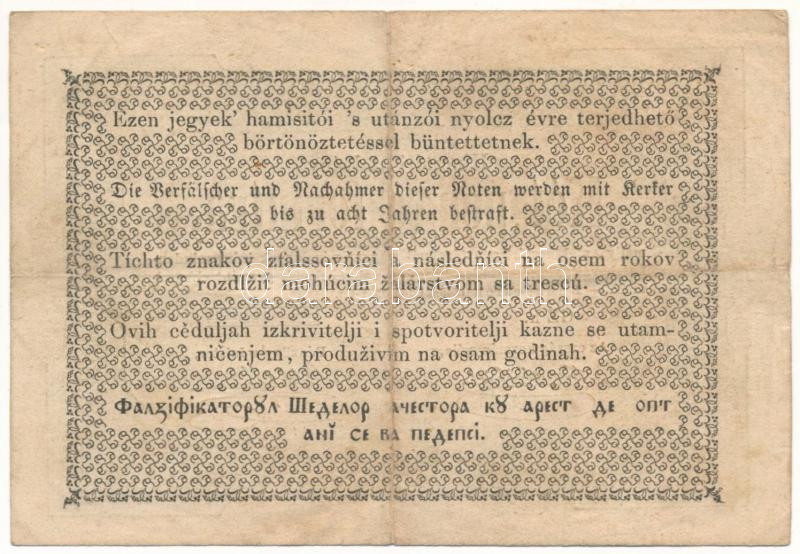 Ezen jegyek' hamisitói 's utánzói nyolcz évre terjedhető
börtönöztetéssel büntettetnek.
Die Verfälscher und Nachahmer dieser Noten werden mit Kerker
bis zu acht Jahren bestraft.
Tíchto znakov zfalssovňíci a následňíci na osem rokov
rozdlžiť mohúcim žalárstvom sa trescú.
Ovih cěduljah izkrivitelji i spotvoritelji kazne se utam-
ničenjem, produživim na osam godinah.
Фалзіфікаторꙋл Шеделор ачестора кꙋ арест де опт
анĭ се ва педепсі.
darabanth